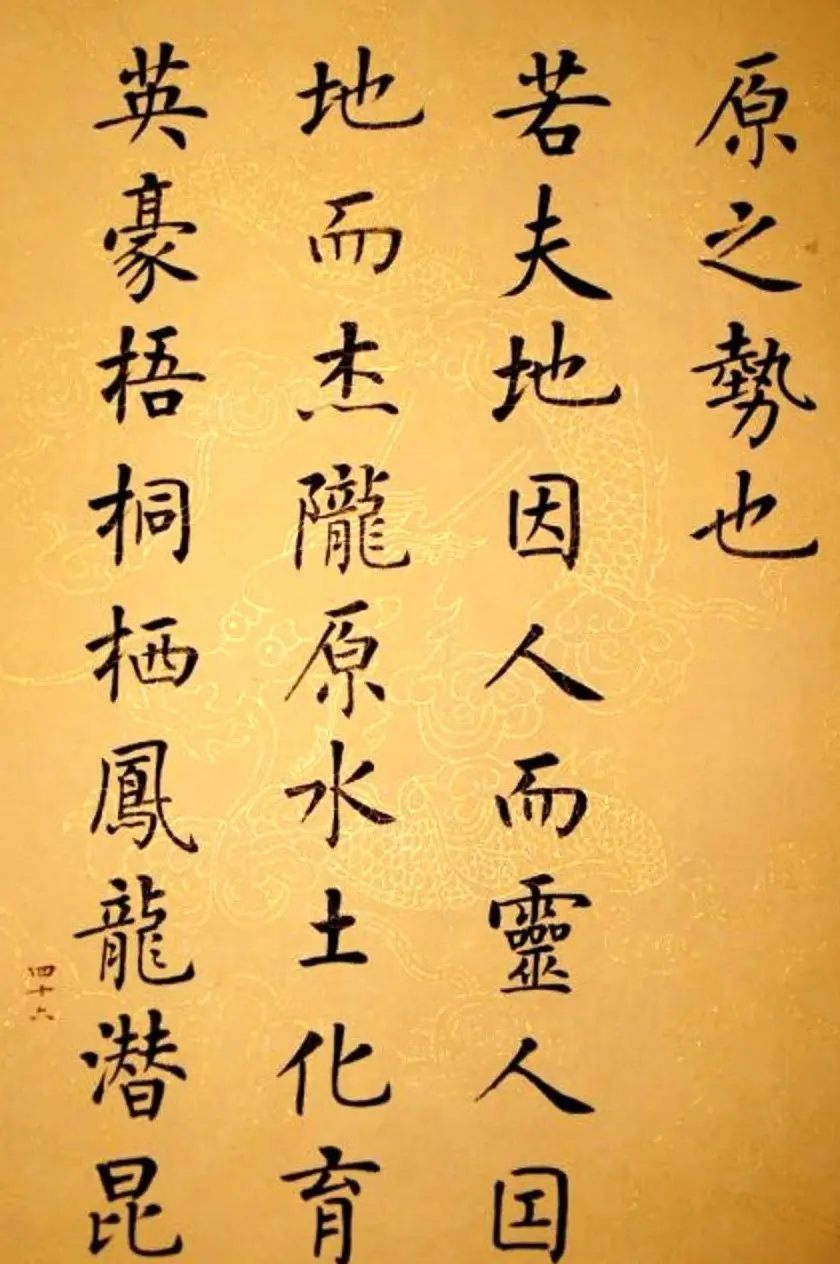 原之勢也
若夫地因人而靈人因
地而杰隴原水土化育
英豪梧桐栖鳳龍潜昆
四十六